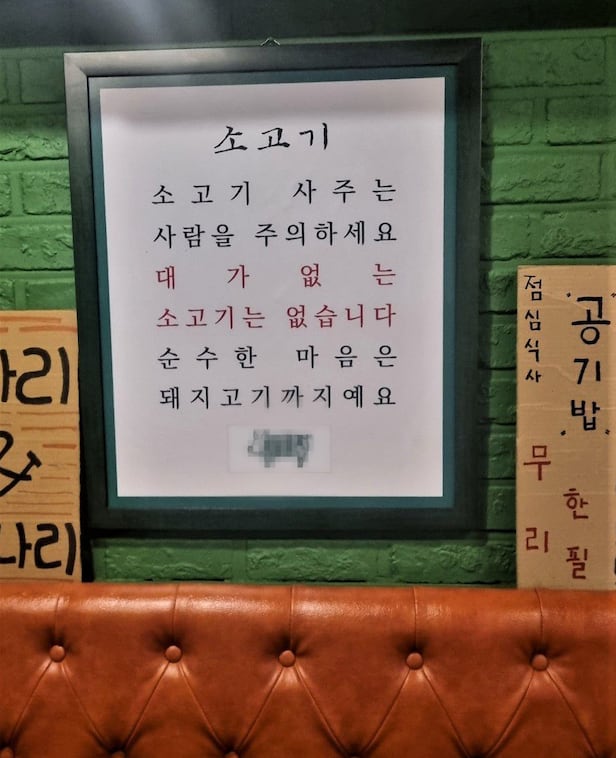 소고기
소고기 사주는
사람을 주의하세요
대가없는
소고기는 없습니다
순수한 마음은
돼지고기까지예요
리
&
나리
점심식사
공기밥
무한리필